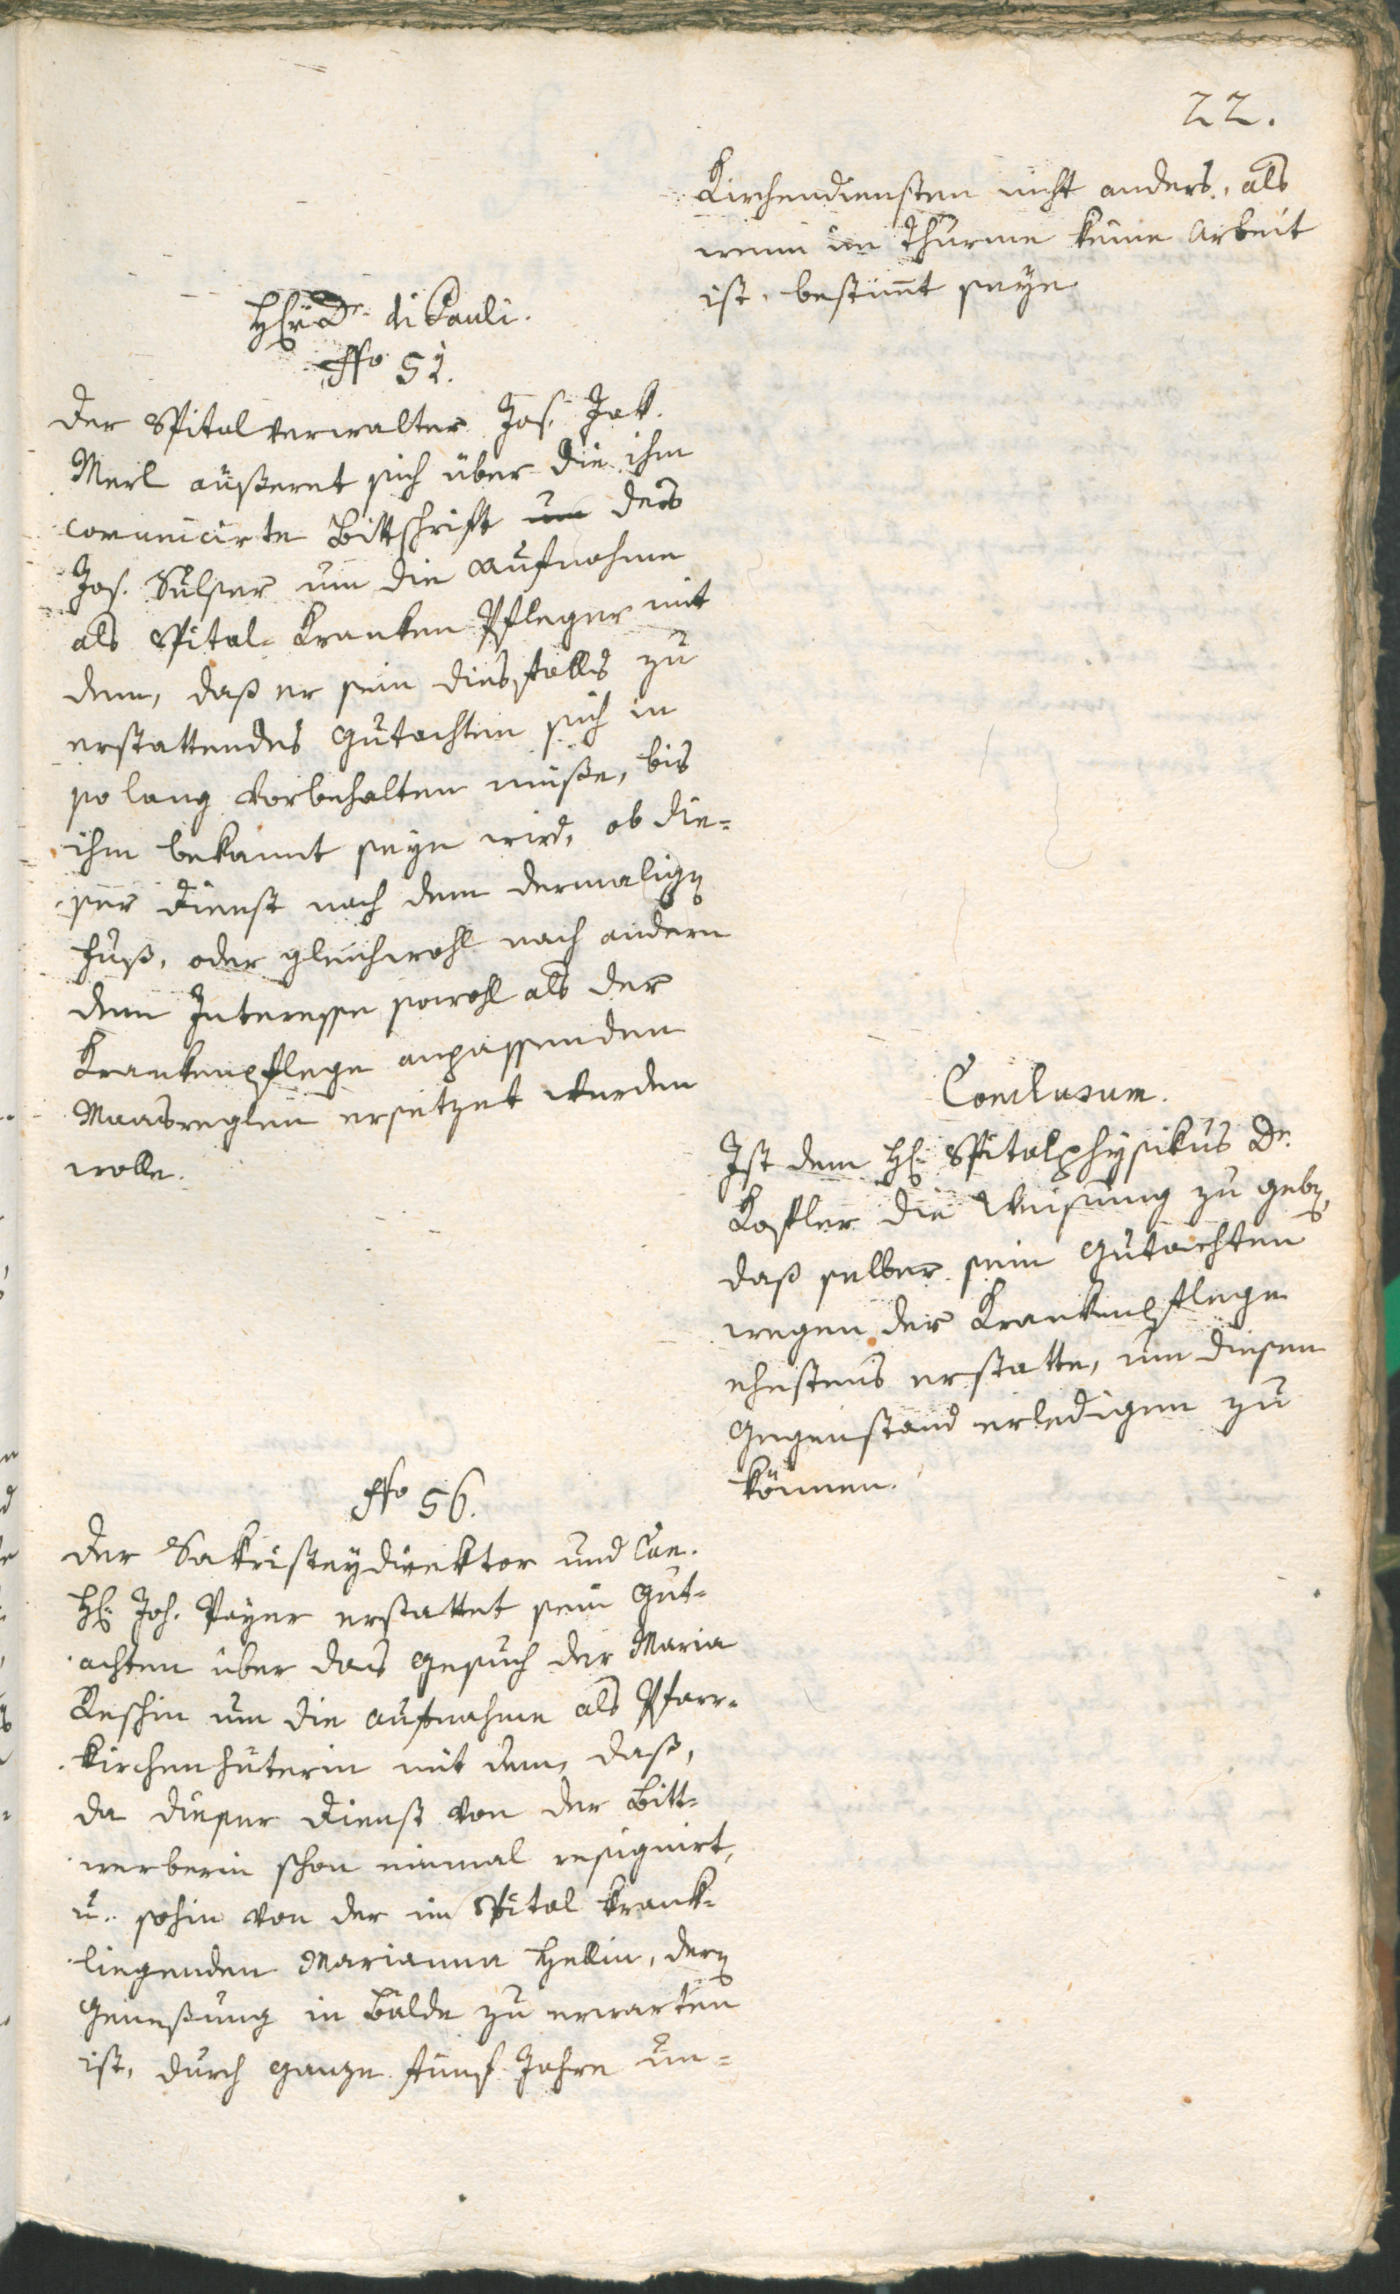 22.
Kirchendiensten nicht anders, als
wenn im Thurme keine Arbeit
ist, bestimt seÿe
H: Dr. di Pauli.
No 51.
Der Spitalverwalter Jos. Jak.
Merl äußeret sich über die ihm
com̄unicirte Bittschrift um des
Jos. Sulser um die Aufnahme
als Spital-Kranken Pfleger mit
dem, daß er sein diesfalls zu
erstattendes Gutachten sich in
so lang vorbehalten müße, bis
ihm bekannt seyn wird, ob die-
ser Dienst nach dem dermalign
Fuß, oder gleichwohl nach andern
dem Interesse sowohl als der
Krankenpflege anpassenden
Maasreglen ersetzet werden
wolle.
Conclusum.
Ist dem H: Spitalphysikus Dr.
Kofler die Weisung zu gebn,
daß selber sein Gutachten
wegen der Krankenpflege
ehestens erstatte, um diesen
Gegenstand erledigen zu
können.
No 56.
Der Sakristeydirektor und Can.
H: Joh. Payer erstattet sein Gut-
achten über das Gesuch der Maria
Reschin um die Aufnahme als Pfarr-
kirchenhüterin mit dem, daß,
da dieser Dienst von der Bitt-
werberin schon einmal resignirt,
u. sohin von der im Spital krank-
liegenden Marianna Hellin, dern
Geneßung in Bälde zu erwarten
ist, durch ganze fünf Jahre un-